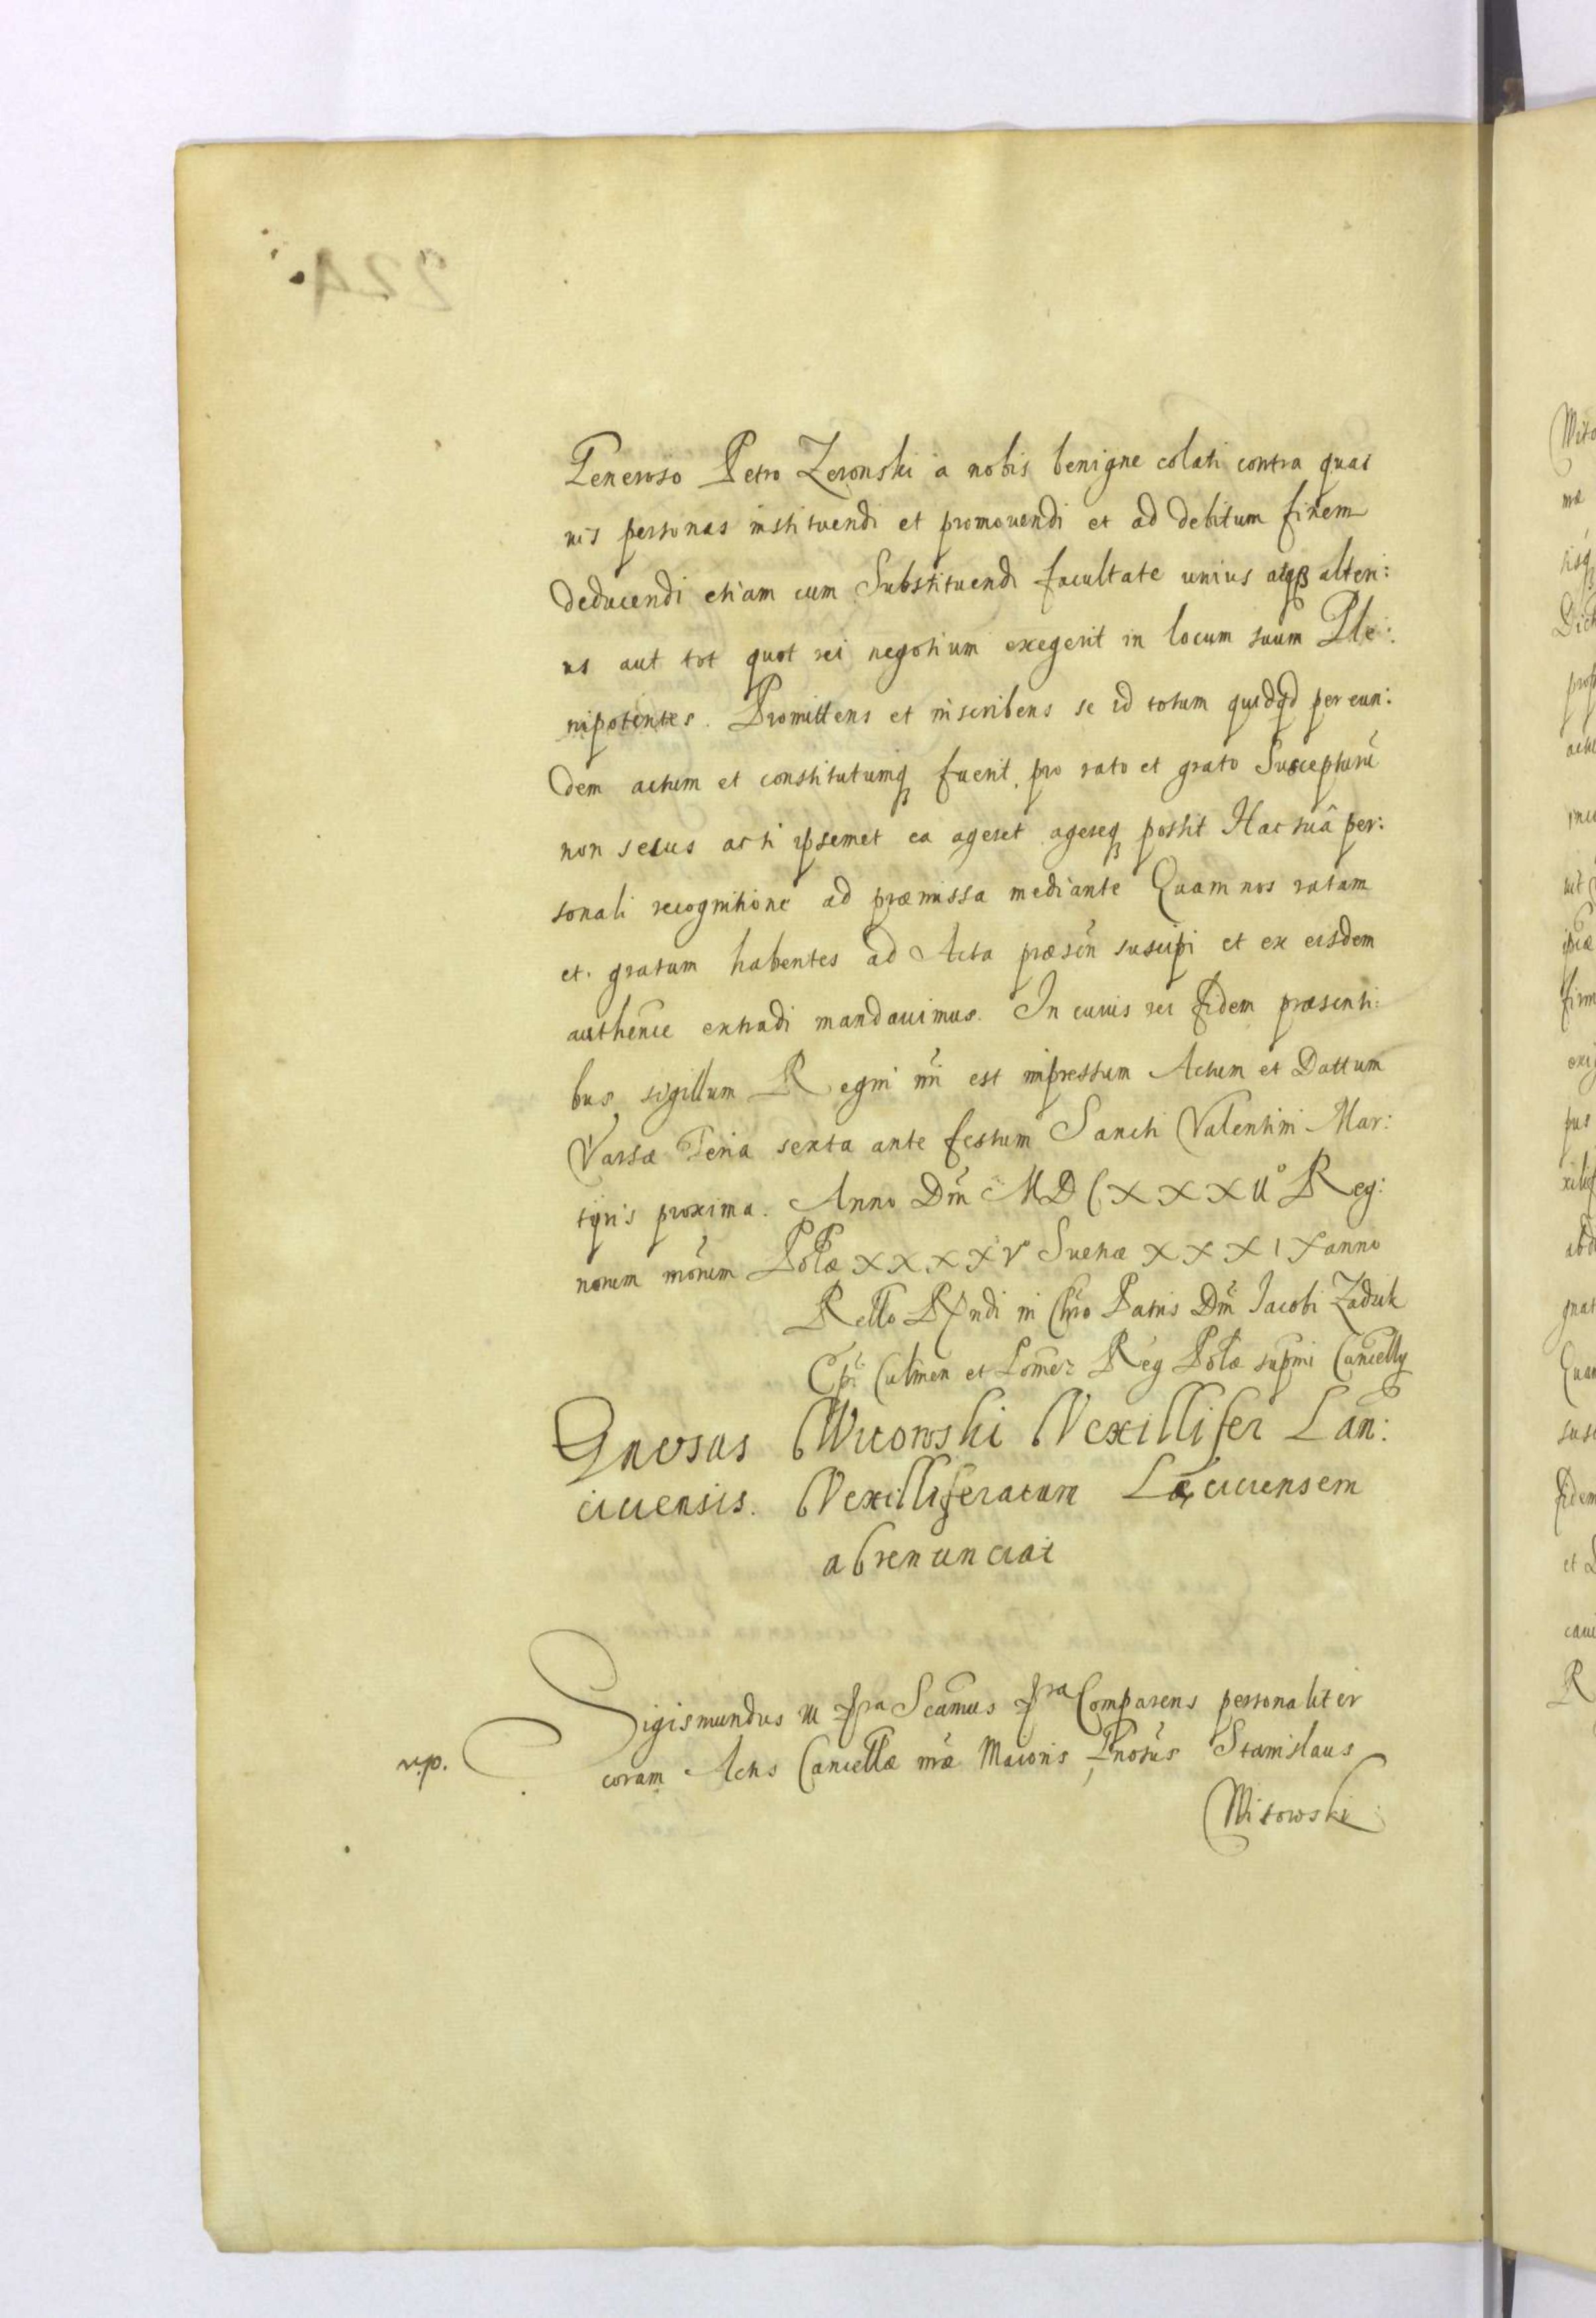 Generoso Petro Zeronski a nobis benigne colati contra quas
uis personas instituendi et promouendi et ad debitum finem
deducendi etiam cum Substituendi facultate unius atqß alteri:
us aut tot quot rei negotium exegerit in locum suum Ple:
nipotentes. Promittens et inscribens se id totum quidqd per eun:
dem actum et constitutumq fuerit pro rato et grato Suscepturū
non secus ac si ipsemet ea ageret agereq possit Hac suâ per:
sonali recognitione ad præmissa mediante Quam nos ratam
et gratam habentes ad Acta præsen suscipi et ex eisdem
authence extradi mandauimus. In cuius rei fidem præsenti:
bus sigillum Regni nri est impressum Actum et Dattum
Varsæ Feria sexta ante festum Sancti Valentini Mar:
tyris proxima. Anno Dni MDCXXXII° Reg:
norum nrorum Polæ XXXXV Suetiæ XXXIX anno
Rello Rndi in Chro Patris Dni Jacobi Zadzik
Epi Culmen et Pomez Reg Polæ supmi Cancelly
Gnosus Witowski Vexillifer Lan:
ciciensis. Vexilliferatum Læciciensem
abrenunciat
Sigismundus III pra Scamus pra Comparens personaliter
coram Actis Cancellæ nræ Maioris, Gnosus Stanislaus
np.
Witowski
224